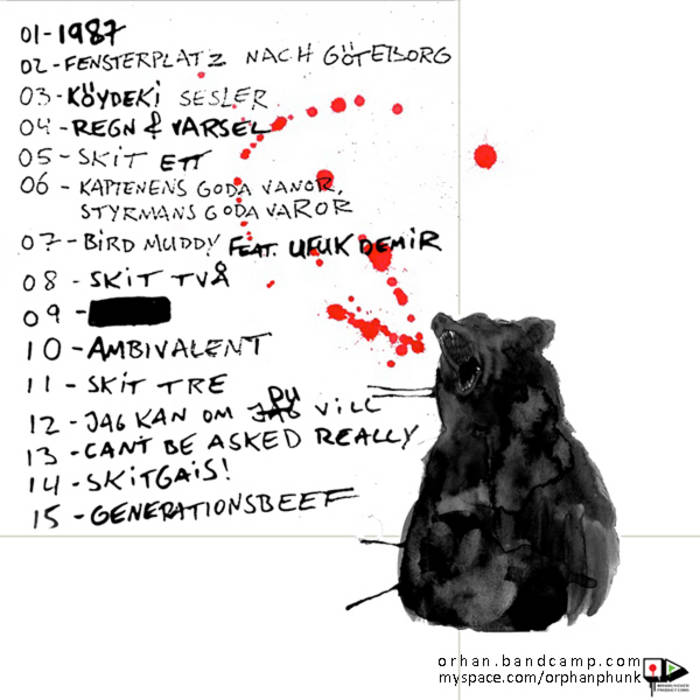 01-1987
02-FENSTERPLATZ NACH GÖTEBORG
03-KÖYDEKİ SESLER
04-REGN & VARSEL
05-SKIT ETT
06-KAPTENENS GODA VANOR,
STYRMANS GODA VAROR
07-BIRD MUDDY FEAT. UFUK DEMIR
08-SKIT TVÅ
09-
10-AMBIVALENT
11-SKIT TRE
12-JAG KAN OM JAG DU VILL
13-CANT BE ASKED REALLY
14-SKITGAIS!
15-GENERATIONSBEEF
orhan.bandcamp.com
myspace.com/orphanphunk